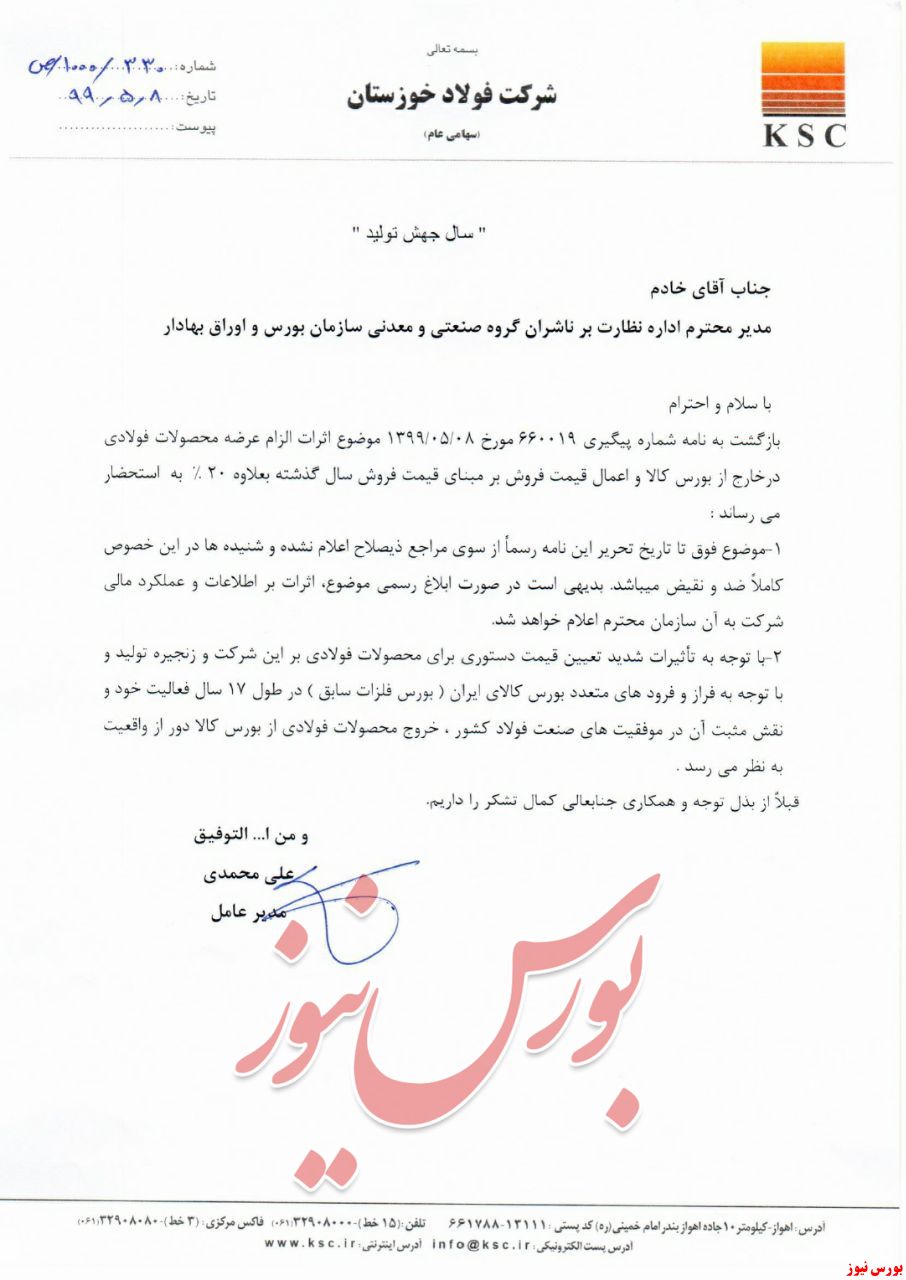 بسمه تعالی
شرکت فولاد خوزستان
(سهامی عام)
KSC
شماره: ۳۳۰/۱۰۰۰/ص
تاریخ: ۹۹.۵.۸
پیوست:
" سال جهش تولید "
جناب آقای خادم
مدیر محترم اداره نظارت بر ناشران گروه صنعتی و معدنی سازمان بورس و اوراق بهادار
با سلام و احترام
بازگشت به نامه شماره پیگیری ۶۶۰۰۱۹ مورخ ۱۳۹۹/۰۵/۰۸ موضوع اثرات الزام عرضه محصولات فولادی
درخارج از بورس کالا و اعمال قیمت فروش بر مبنای قیمت فروش سال گذشته بعلاوه ۲۰ ٪ به استحضار
می رساند :
۱-موضوع فوق تا تاریخ تحریر این نامه رسماً از سوی مراجع ذیصلاح اعلام نشده و شنیده ها در این خصوص
کاملاً ضد و نقیض میباشد. بدیهی است در صورت ابلاغ رسمی موضوع، اثرات بر اطلاعات و عملکرد مالی
شرکت به آن سازمان محترم اعلام خواهد شد.
۲-با توجه به تأثیرات شدید تعیین قیمت دستوری برای محصولات فولادی بر این شرکت و زنجیره تولید و
با توجه به فراز و فرود های متعدد بورس کالای ایران ( بورس فلزات سابق ) در طول ۱۷ سال فعالیت خود و
نقش مثبت آن در موفقیت های صنعت فولاد کشور ، خروج محصولات فولادی از بورس کالا دور از واقعیت
به نظر می رسد .
قبلاً از بذل توجه و همکاری جنابعالی کمال تشکر را داریم.
و من ا... التوفیق
علی محمدی
مدیر عامل
بورس نیوز
آدرس: اهواز-کیلومتر ۱۰ جاده اهواز بندر امام خمینی (ره) کد پستی : ۱۳۱۱۱-۶۶۱۷۸۸ تلفن: (۱۵ خط)-۳۲۹۰۸۰۰۰(۰۶۱) فاکس مرکزی: (۳ خط)-۳۲۹۰۸۰۸۰(۰۶۱)
آدرس پست الکترونیکی: info@ksc.ir آدرس اینترنتی: www.ksc.ir
بورس نیوز